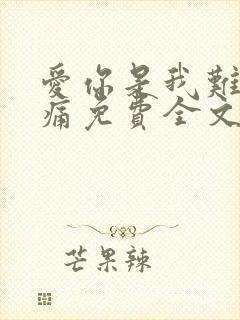 愛你是我難
痛免費全文
芒果辣